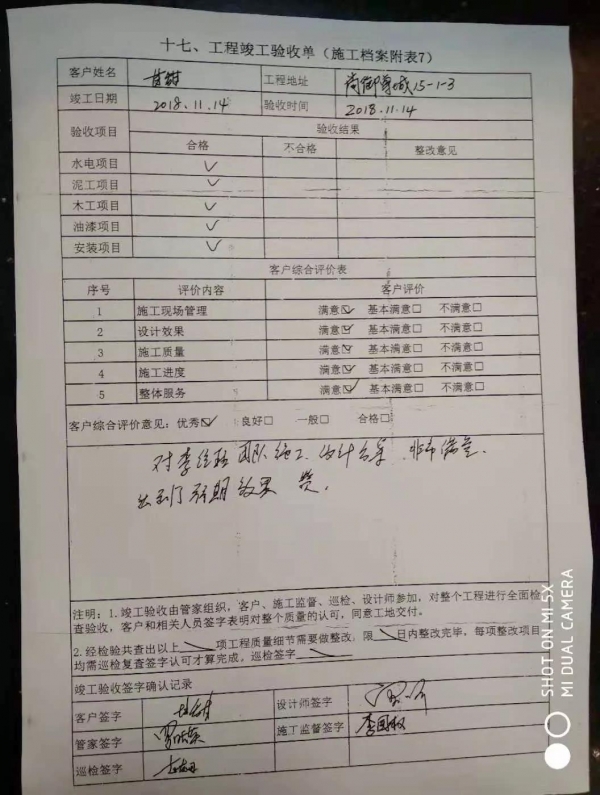 十七、工程竣工验收单（施工档案附表7）
客户姓名 甘甜 工程地址 尚御尊城15-1-3
竣工日期 2018.11.14 验收时间 2018.11.14
验收项目 验收结果
合格 不合格 整改意见
水电项目 ✓
泥工项目 ✓
木工项目 ✓
油漆项目 ✓
安装项目 ✓
客户综合评价表
序号 评价内容 客户评价
1 施工现场管理 满意☑ 基本满意□ 不满意□
2 设计效果 满意☑ 基本满意□ 不满意□
3 施工质量 满意☑ 基本满意□ 不满意□
4 施工进度 满意☑ 基本满意□ 不满意□
5 整体服务 满意☑ 基本满意□ 不满意□
客户综合评价意见：优秀☑ 良好□ 一般□ 合格□
对李 团队施工、设计 非常满意
达到了预期效果 赞。
注明：1.竣工验收由管家组织，客户、施工监督、巡检、设计师参加，对整个工程进行全面检
查验收，客户和相关人员签字表明对整个质量的认可，同意工地交付。
2.经检验共查出以上 项工程质量细节需要做整改，限 日内整改完毕，每项整改项目
均需巡检复查签字认可才算完成。巡检签字
竣工验收签字确认记录
客户签字 设计师签字
管家签字 施工监督签字 李国权
巡检签字
SHOT ON MI 5X
MI DUAL CAMERA